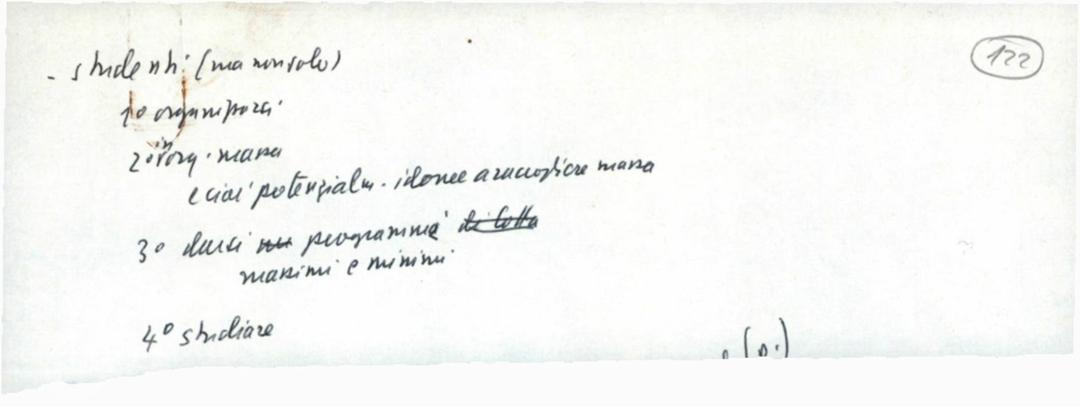 122
- studenti (ma non solo)
1o organizzarsi
2o in org. massa
e cioè potenzialm. idonee a raccogliere massa
3o darsi un programmi di lotta
massimi e minimi
4o studiare